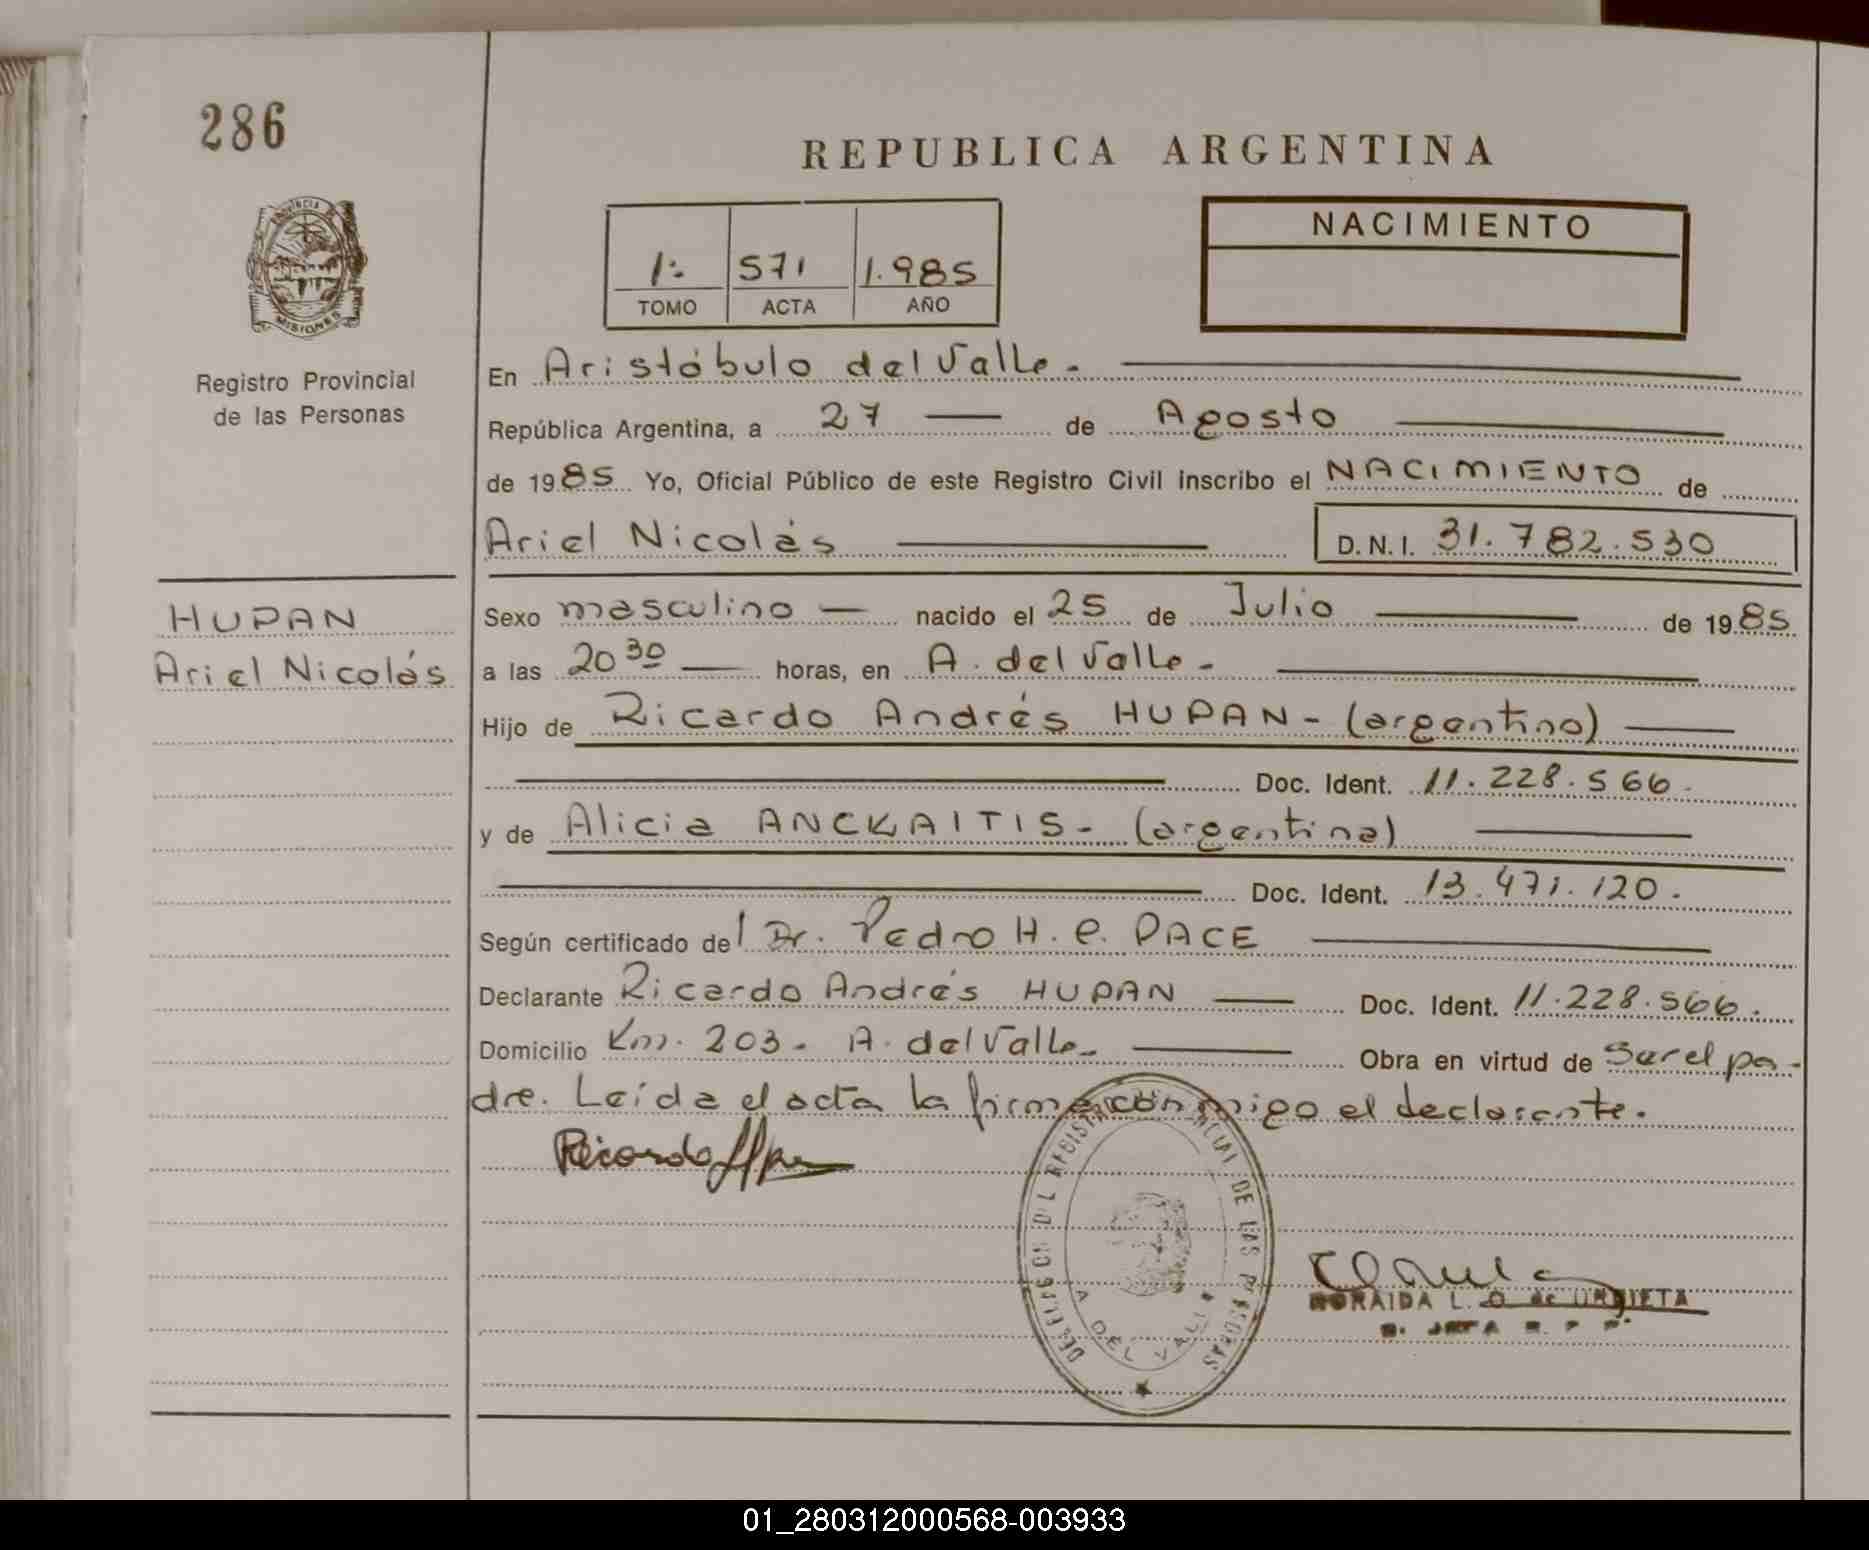 286
REPUBLICA ARGENTINA
PROVINCIA DE
MISIONES
Registro Provincial
de las Personas
1: 571 1.985
TOMO ACTA AÑO
NACIMIENTO
En Aristóbulo del Valle.
República Argentina, a 27 de Agosto
de 1985 Yo, Oficial Público de este Registro Civil inscribo el NACIMIENTO de
Ariel Nicolás D.N.I. 31.782.530
HUPAN
Ariel Nicolás
Sexo masculino nacido el 25 de Julio de 1985
a las 20 30 horas, en A. del Valle-
Hijo de Ricardo Andrés HUPAN- (argentino)
Doc. Ident. 11.228.566.
y de Alicia ANCKAITIS- (argentina)
Doc. Ident. 13.471.120.
Según certificado del Dr. Pedro H. C. PACE
Declarante Ricardo Andrés HUPAN Doc. Ident. 11.228.566.
Domicilio Km. 203. A. del Valle- Obra en virtud de Ser el pa-
dre. Leída el acta la firma conmigo el declarante.
Ricardo
DE LAS PERSONAS
A DEL VALLE
L. O. de URRIETA
01_280312000568-003933